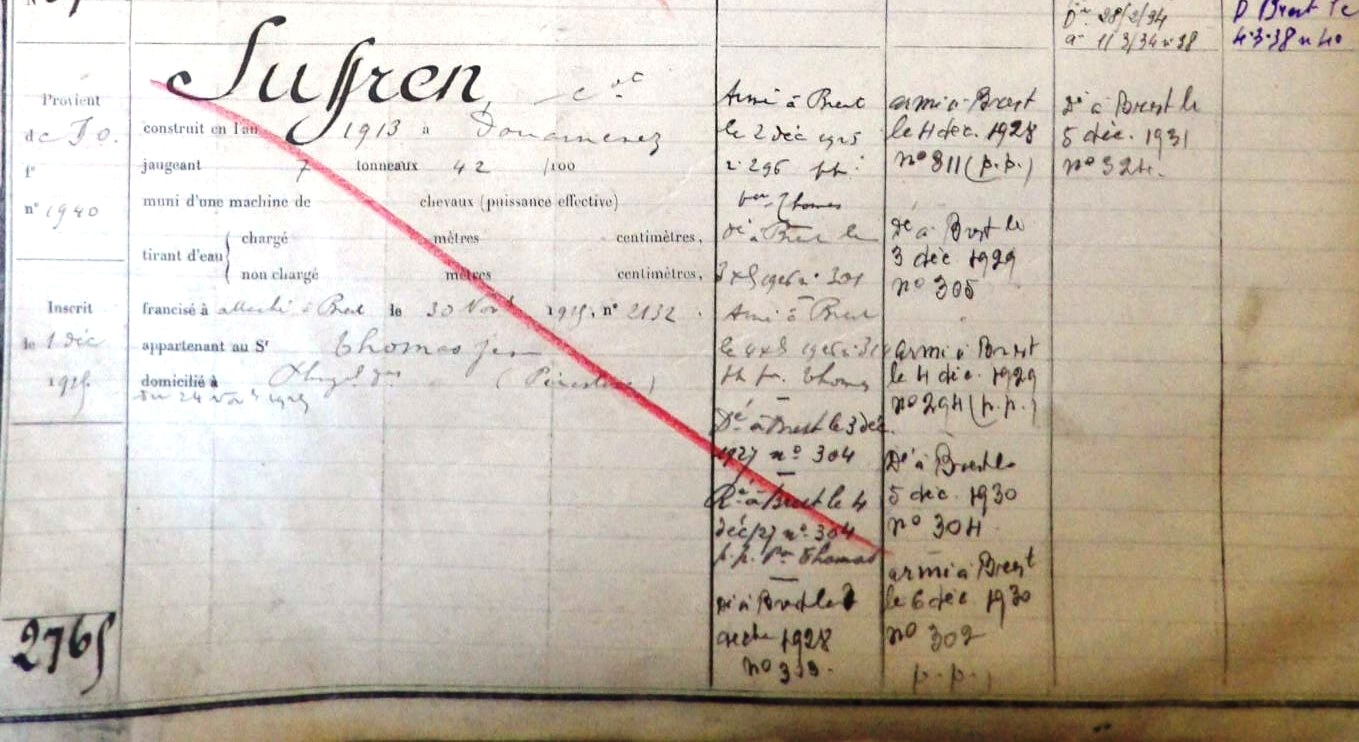 Dé 28/2/34
D Brest le
a 1/3/34 n 38
4.3.38 n 40
Suffren, cre
Provient
de Fo.
fo
n° 1940
construit en l'an 1913 à Douarnenez
jaugeant 7 tonneaux 42 /100
muni d'une machine de chevaux (puissance effective)
tirant d'eau
chargé mètres centimètres,
non chargé mètres centimètres,
Inscrit
le 1 déc
1925
francisé à attaché à Brest le 30 Nov 1925, n° 2132.
appartenant au Sr Thomas jean
domicilié à (Finistère)
du 24 Nov 1925
2765
Armé à Brest
le 2 déc 1925
n 296 pp
par Thomas
Dé à Brest le
3 xbre 1926 n° 301
Armé à Brest
le 4 xbre 1926 n
pp pr. Thomas
Dé à Brest le 3 déc
1927 n° 304
Ré à Brest le 4
déc/27 n° 304
p.p. Pr Thomas
Dé à Brest le 3
1928
n° 313.
armé à Brest
le 4 déc. 1928
n° 311 (p.p.)
Dé à Brest le
3 déc 1929
n° 305
armé à Brest
le 4 déc. 1929
n° 294 (p.p.)
Dé à Brest le
5 déc. 1930
n° 304
armé à Brest
le 6 déc 1930
n° 302
p.p.
Dé à Brest le
5 déc. 1931
n° 324.